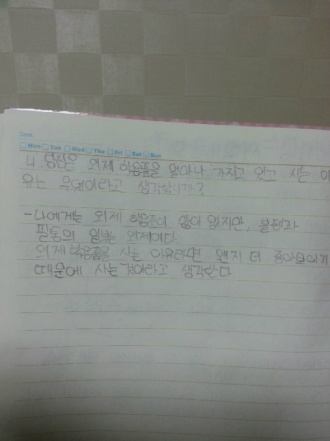 Date
Mon Tue Wed Thu Fri Sat Sun
4. 당신은 외제 학용품을 얼마나 가지고 있고 사는 이
유는 무엇이라고 생각합니까?
-나에게는 외제 학용품이 많이 없지만, 볼펜과
필통의 일부는 외제이다.
외제 학용품을 사는 이유라면 왠지 더 좋아보이기
때문에 사는 것이라고 생각한다